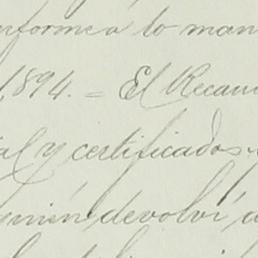 informe a lo man
1,894. = El Recau
ial y certificados
mién devolví a